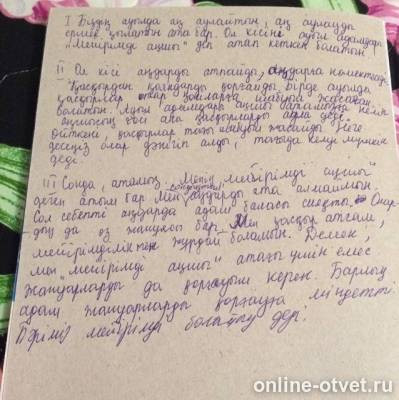 I Біздің ауылда аң аулайтын, аң аулауды
ермек қылатын ата бар. Ол кісіні ауыл адамдары
"Мейірімді аңшы" деп атап кеткен болатын.
II Ол кісі аңдарды атпайды, аңдарға көмектеседі
Қасқырдан қойларды қорғайды. Бірде ауылда
қасқырлар қойларға шабуыл жасаған
болатын. Ауыл адамдары аңшы
аңшының өзі ана қасқырларды ара деді.
Өйткені, қасқырлар тағы шабуыл жасайды. Неге
десеңіз олар дәнігіп алды, тағы да келуі мүмкін
деді.
III Сонда, аталық "Менің мейірімді аңшы"
деген атым бар. Мен сондықтан аңдарды ата алмаймын.
Сол себепті аңдарға адам баласы тиеді. Олар
дың да өз жанұясы бар. Мен қасқыр атсам,
мейірімділіктен жұрдай боламын. Демек,
мен "мейірімді аңшы" атағы үшін емес
жануарларды да қорғауым керек. Барлық
адам жануарларды қорғауға міндетті.
Бәріміз мейірімді болайық деді.
online-otvet.ru